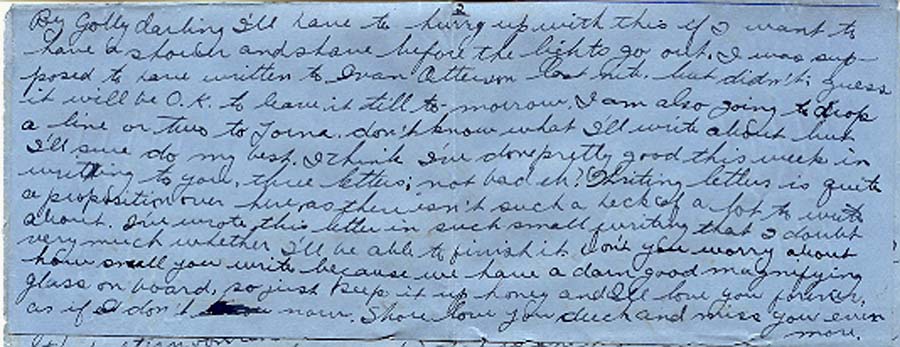 2
By Golly darling I'll have to hurry up with this if I want to
have a shower and shave before the lights go out. I was sup-
posed to have written to Ivan Atterson last nite. but didn't; guess
it will be O.K. to leave it till to-morrow. I am also going to drop
a line or two to Lorna. don't know what I'll write about but
I'll sure do my best. I think I've done pretty good this week in
writing to you, three letters; not bad eh? Writing letters is quite
a proposition over here, as there isn't such a heck of a lot to write
about. I've wrote this letter in such small writing that I doubt
very much whether I'll be able to finish it. Don't you worry about
how small you write because we have a darn good magnifying
glass on board, so just keep it up honey and I'll love you forever,
as if I don't now. Shore love you duch and miss you even
more.